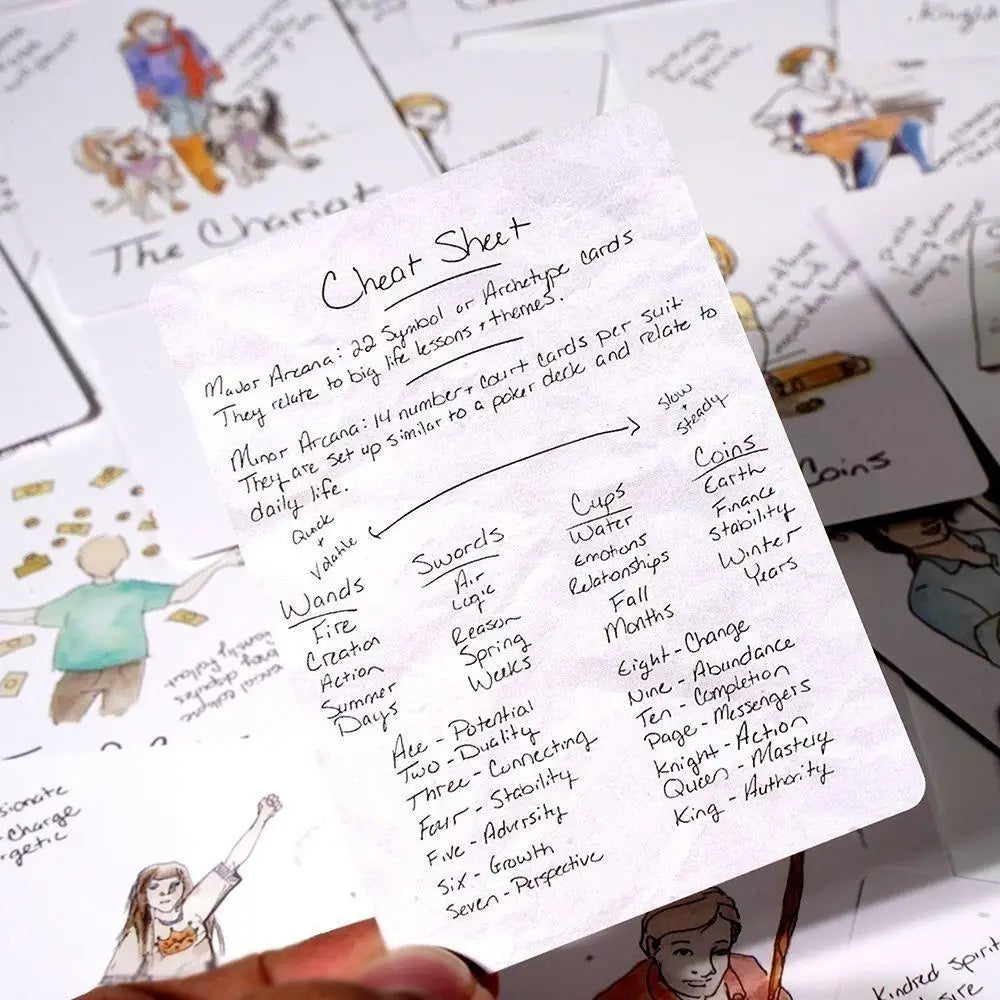 The Chariot
Knight
Cheat Sheet
Major Arcana: 22 Symbol or Archetype cards
They relate to big life lessons + themes.
Minor Arcana: 14 number + court cards per suit
They are set up similar to a poker deck and relate to
daily life.
Quick
+
Volatile
Slow
+
Steady
Wands
Fire
Creation
Action
Summer
Days
Swords
Air
Logic
Reason
Spring
Weeks
Cups
Water
Emotions
Relationships
Fall
Months
Coins
Earth
Finance
Stability
Winter
Years
Ace - Potential
Two - Duality
Three - Connecting
Four - Stability
Five - Adversity
Six - Growth
Seven - Perspective
Eight - Change
Nine - Abundance
Ten - Completion
Page - Messengers
Knight - Action
Queen - Mastery
King - Authority
Coins
sionate
-Charge
rgetic
Kindred Spirit